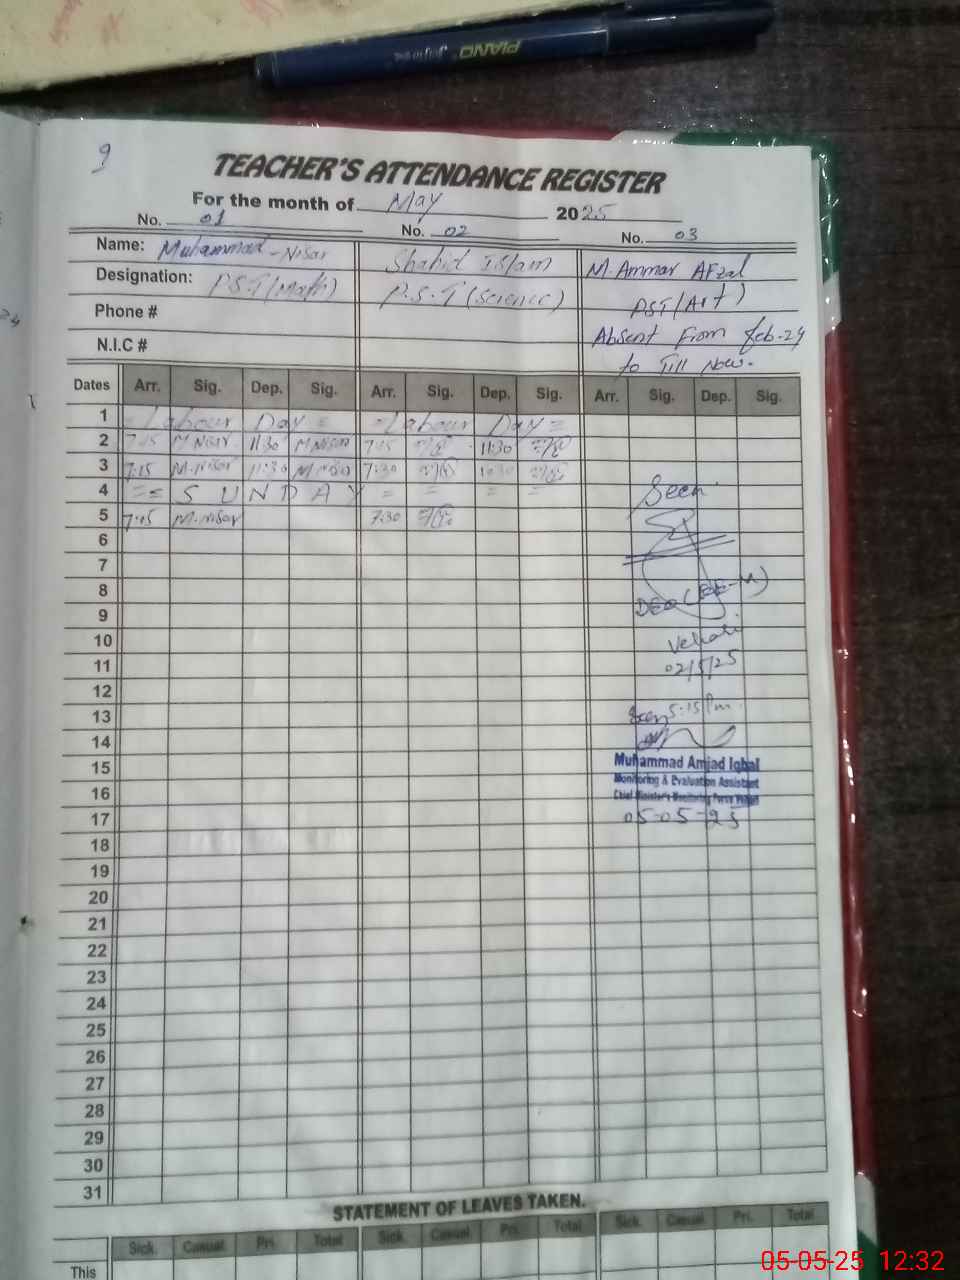 PIANO
9
TEACHER'S ATTENDANCE REGISTER
For the month of May 2025
No. 01 No. 02 No. 03
Name: Muhammad-Nisar Shahid Islam M. Ammar Afzal
Designation: P.S.T (Math) P.S.T (Science) PST/Art)
Phone # Absent From Feb-24
N.I.C # to Till Now.
Dates Arr. Sig. Dep. Sig. Arr. Sig. Dep. Sig. Arr. Sig. Dep. Sig.
1 = Labour Day = = Labour Day =
2 7:15 M Nisar 11:30 M Nisar 7:15 11:30
3 7:15 M.Nisar 11:30 M Nisar 7:30
4 = = S U N D A Y = = = =
Seen
5 7:15 M.Nisar 7:30
6
7
8
DEO (EE-M)
9
10
Vehari
11
02/5/25
12
13
Seen 5:15 Pm.
14
15
Muhammad Amjad Iqbal
Monitoring & Evaluation Assistant
16
Chief Minister's Monitoring Force Vehari
17
05-05-25
18
19
20
21
22
23
24
25
26
27
28
29
30
31
STATEMENT OF LEAVES TAKEN.
Sick. Casual. Pri. Total Sick. Casual. Pri. Total Sick. Casual. Pri. Total
This
05-05-25 12:32